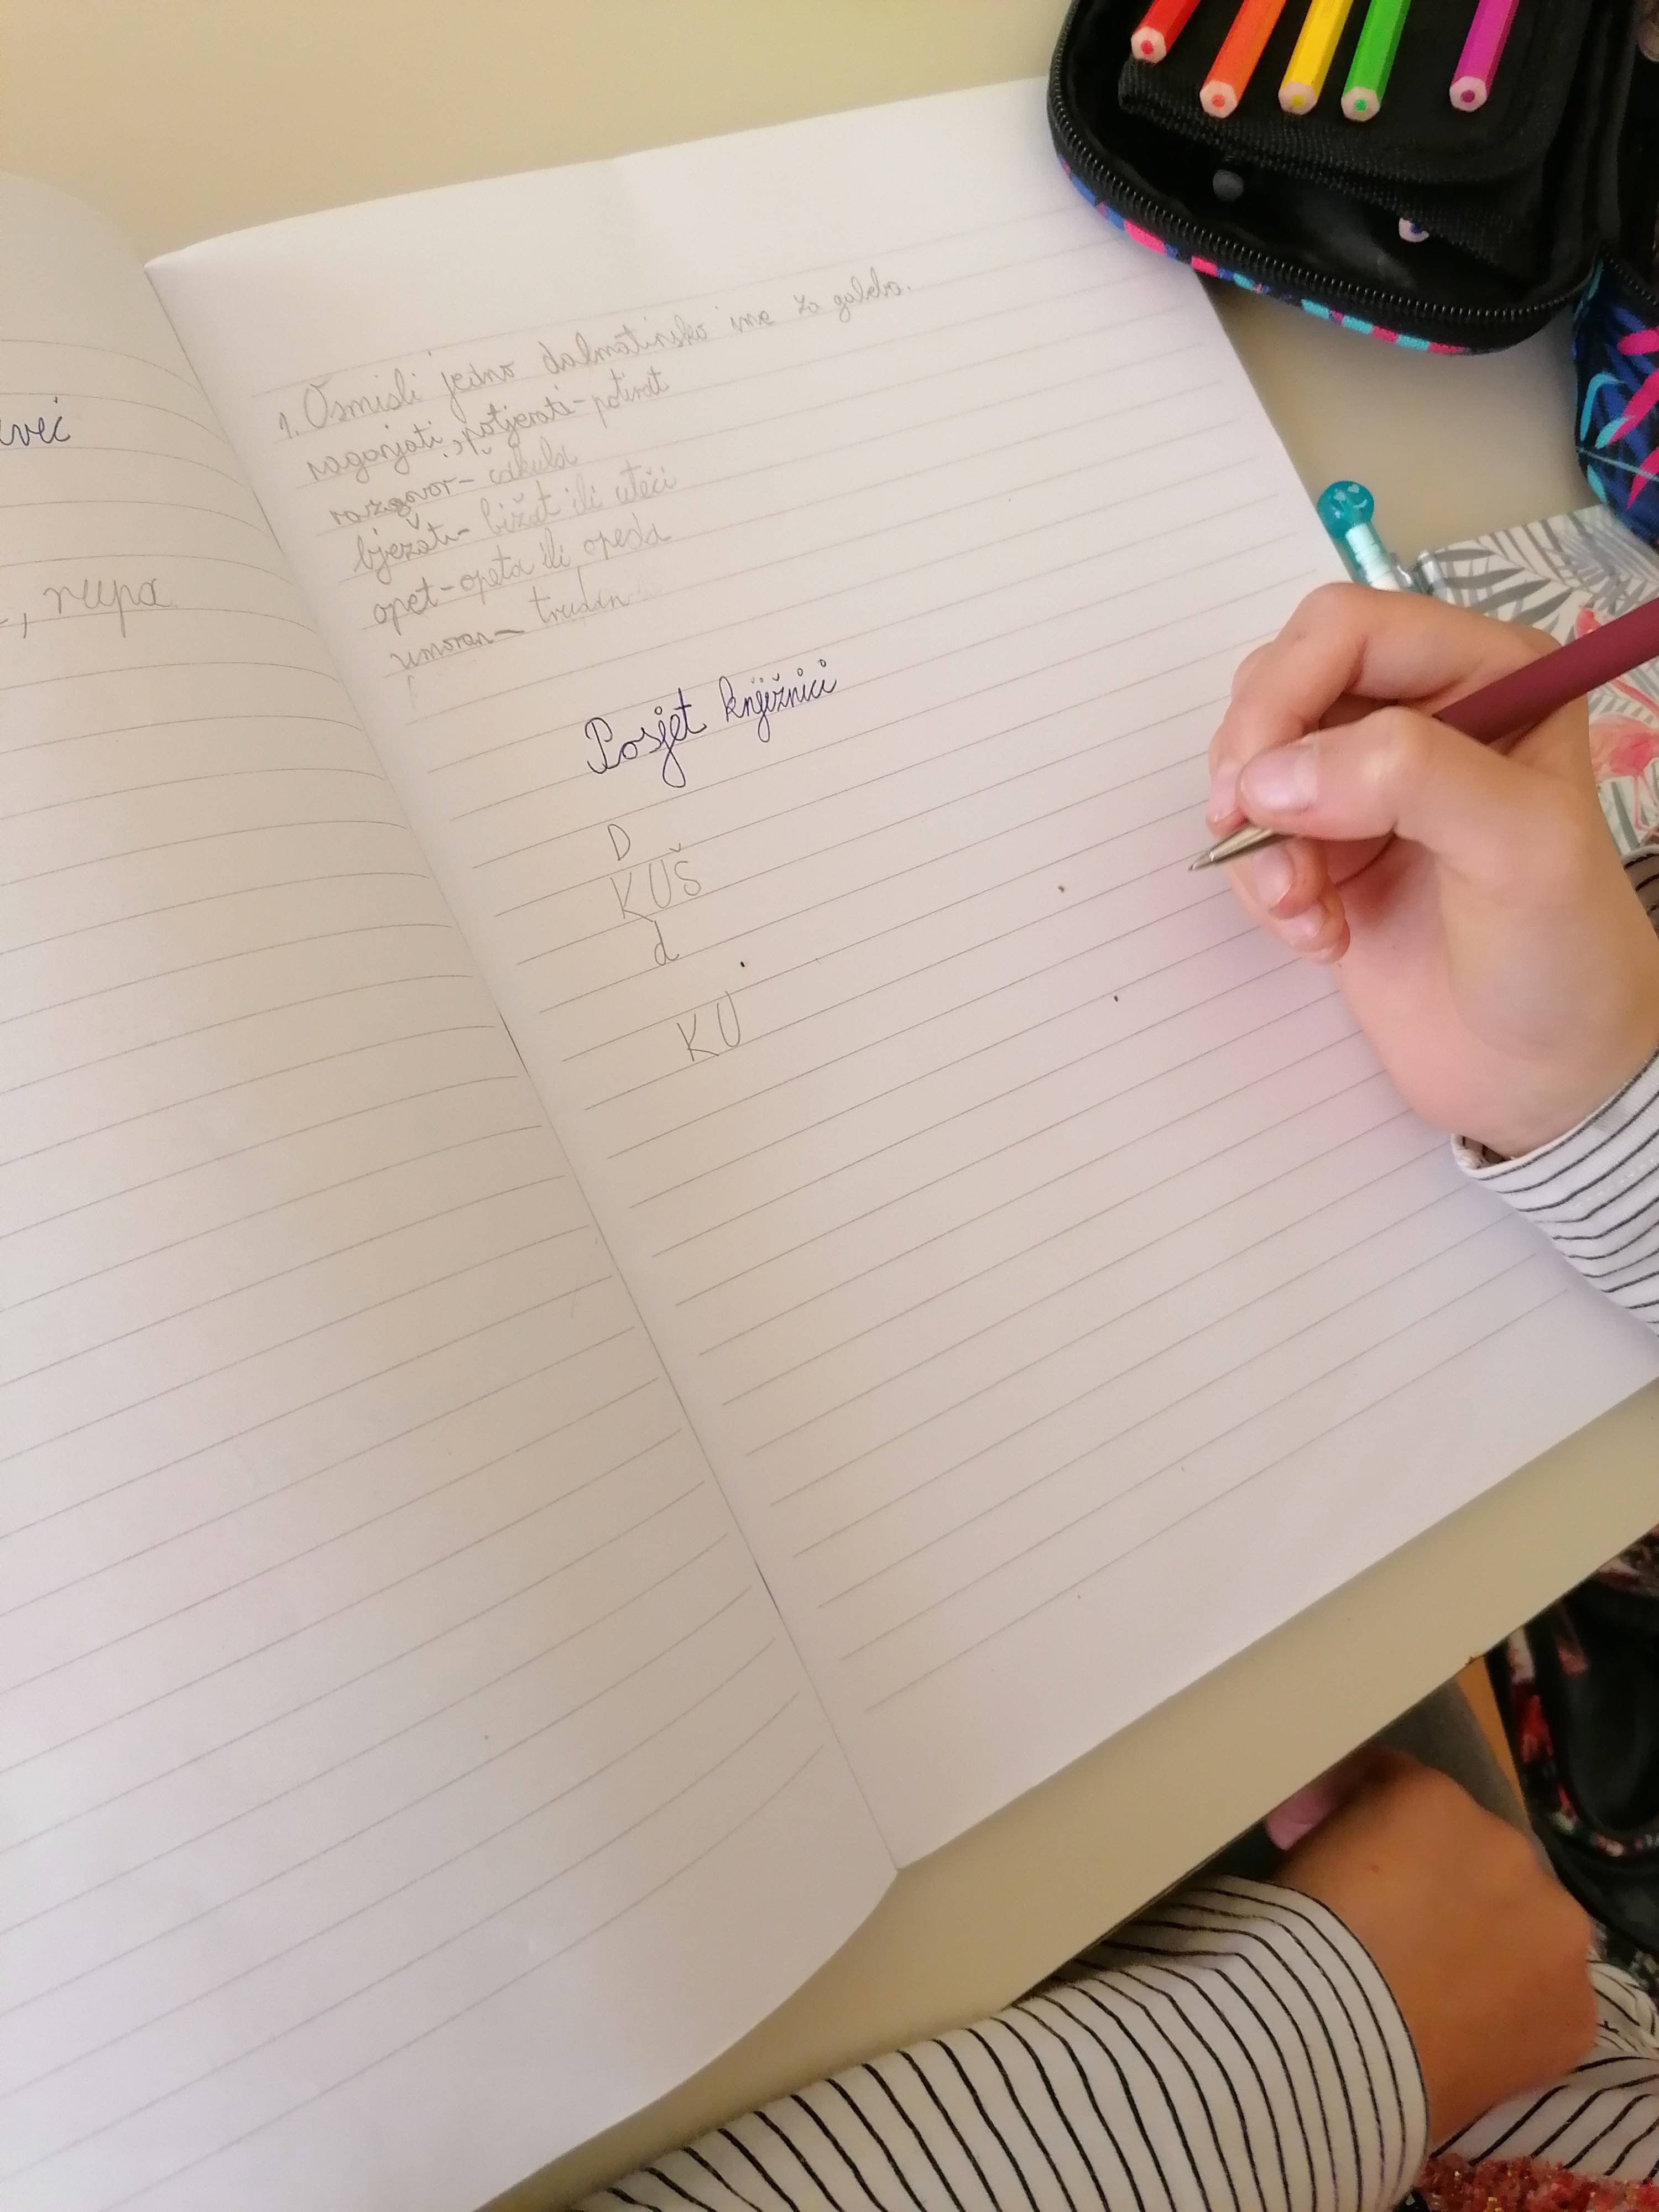 več
, rupa
1. Osmisli jedno dalmatinsko ime za galeba.
naganjati, potjerati - potirat
razgovor - ćakula
bježati - bižat ili uteći
opet - opeta ili opeda
umoran - trudan
Posjet knjižnici
D
KUŠ
d
KU